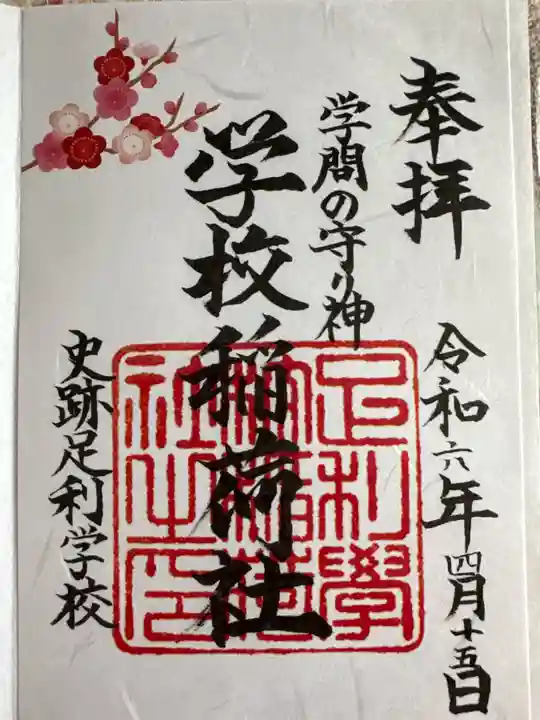 奉拝
令和六年四月十五日
学問の守り神
学校稲荷社
史跡足利学校
足利學
社之印